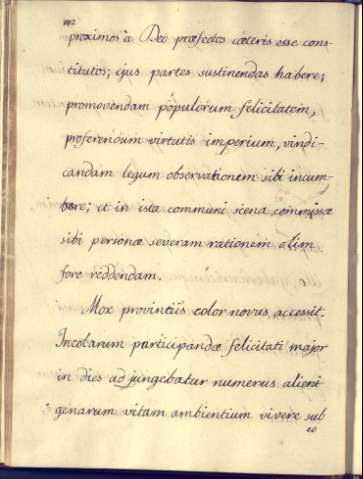 proximos a Deo præfectos cæteris esse cons-
titutos; ejus partes sustinendas habere;
promovendam populorum felicitatem,
proferendum virtutis imperium, vindi-
candam legum observationem sibi incum-
bere; et in ista communi scena commissæ
sibi personæ severam rationem olim
fore reddendam.
Mox provinciis color novus accessit.
Incolarum participandæ felicitati major
in dies adjungebatur numerus alieni-
genarum vitam ambientium vivere sub
eo